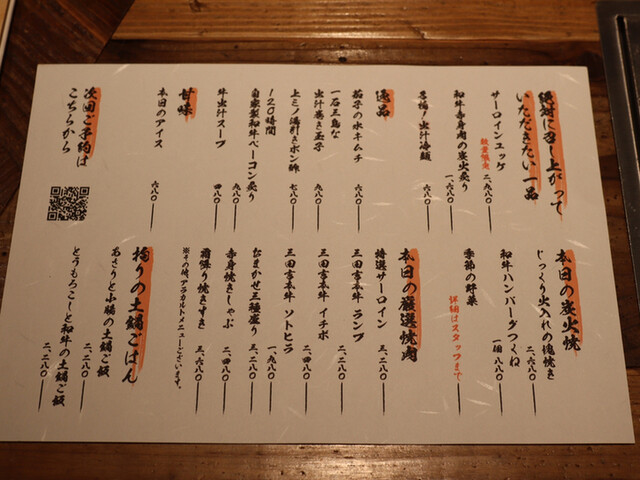 絶対に召し上がって
いただきたい一品
サーロインユッケ
数量限定
二、九八〇
和牛赤身肉の炭火炙り
一、六八〇
子福！出汁冷麺
六八〇
逸品
茄子の水キムチ
六八〇
出汁巻き玉子
九八〇
上ミノ湯引きポン酢
七八〇
120時間
自家製和牛ベーコン炙り
九八〇
牛出汁スープ
四八〇
甘味
本日のアイス
六八〇
次回ご予約は
こちらから
本日の炭火焼
じっくり火入れの塊焼き
二、六八〇
和牛ハンバーグつくね
一個 八八〇
季節の野菜
詳細はスタッフまで
本日の厳選焼肉
特選サーロイン
三、二八〇
三田吉本牛 ランプ
二、二八〇
三田吉本牛 イチボ
二、四八〇
三田吉本牛 ソトヒラ
一、九八〇
おまかせ三種盛り
三、二八〇
赤身焼きしゃぶ
二、四八〇
霜降り焼きすき
三、六八〇
※その他、アラカルトメニューございます。
拘りの土鍋ごはん
あさりと小腸の土鍋ご飯
二、二八〇
とうもろこしと和牛の土鍋ご飯
二、二八〇